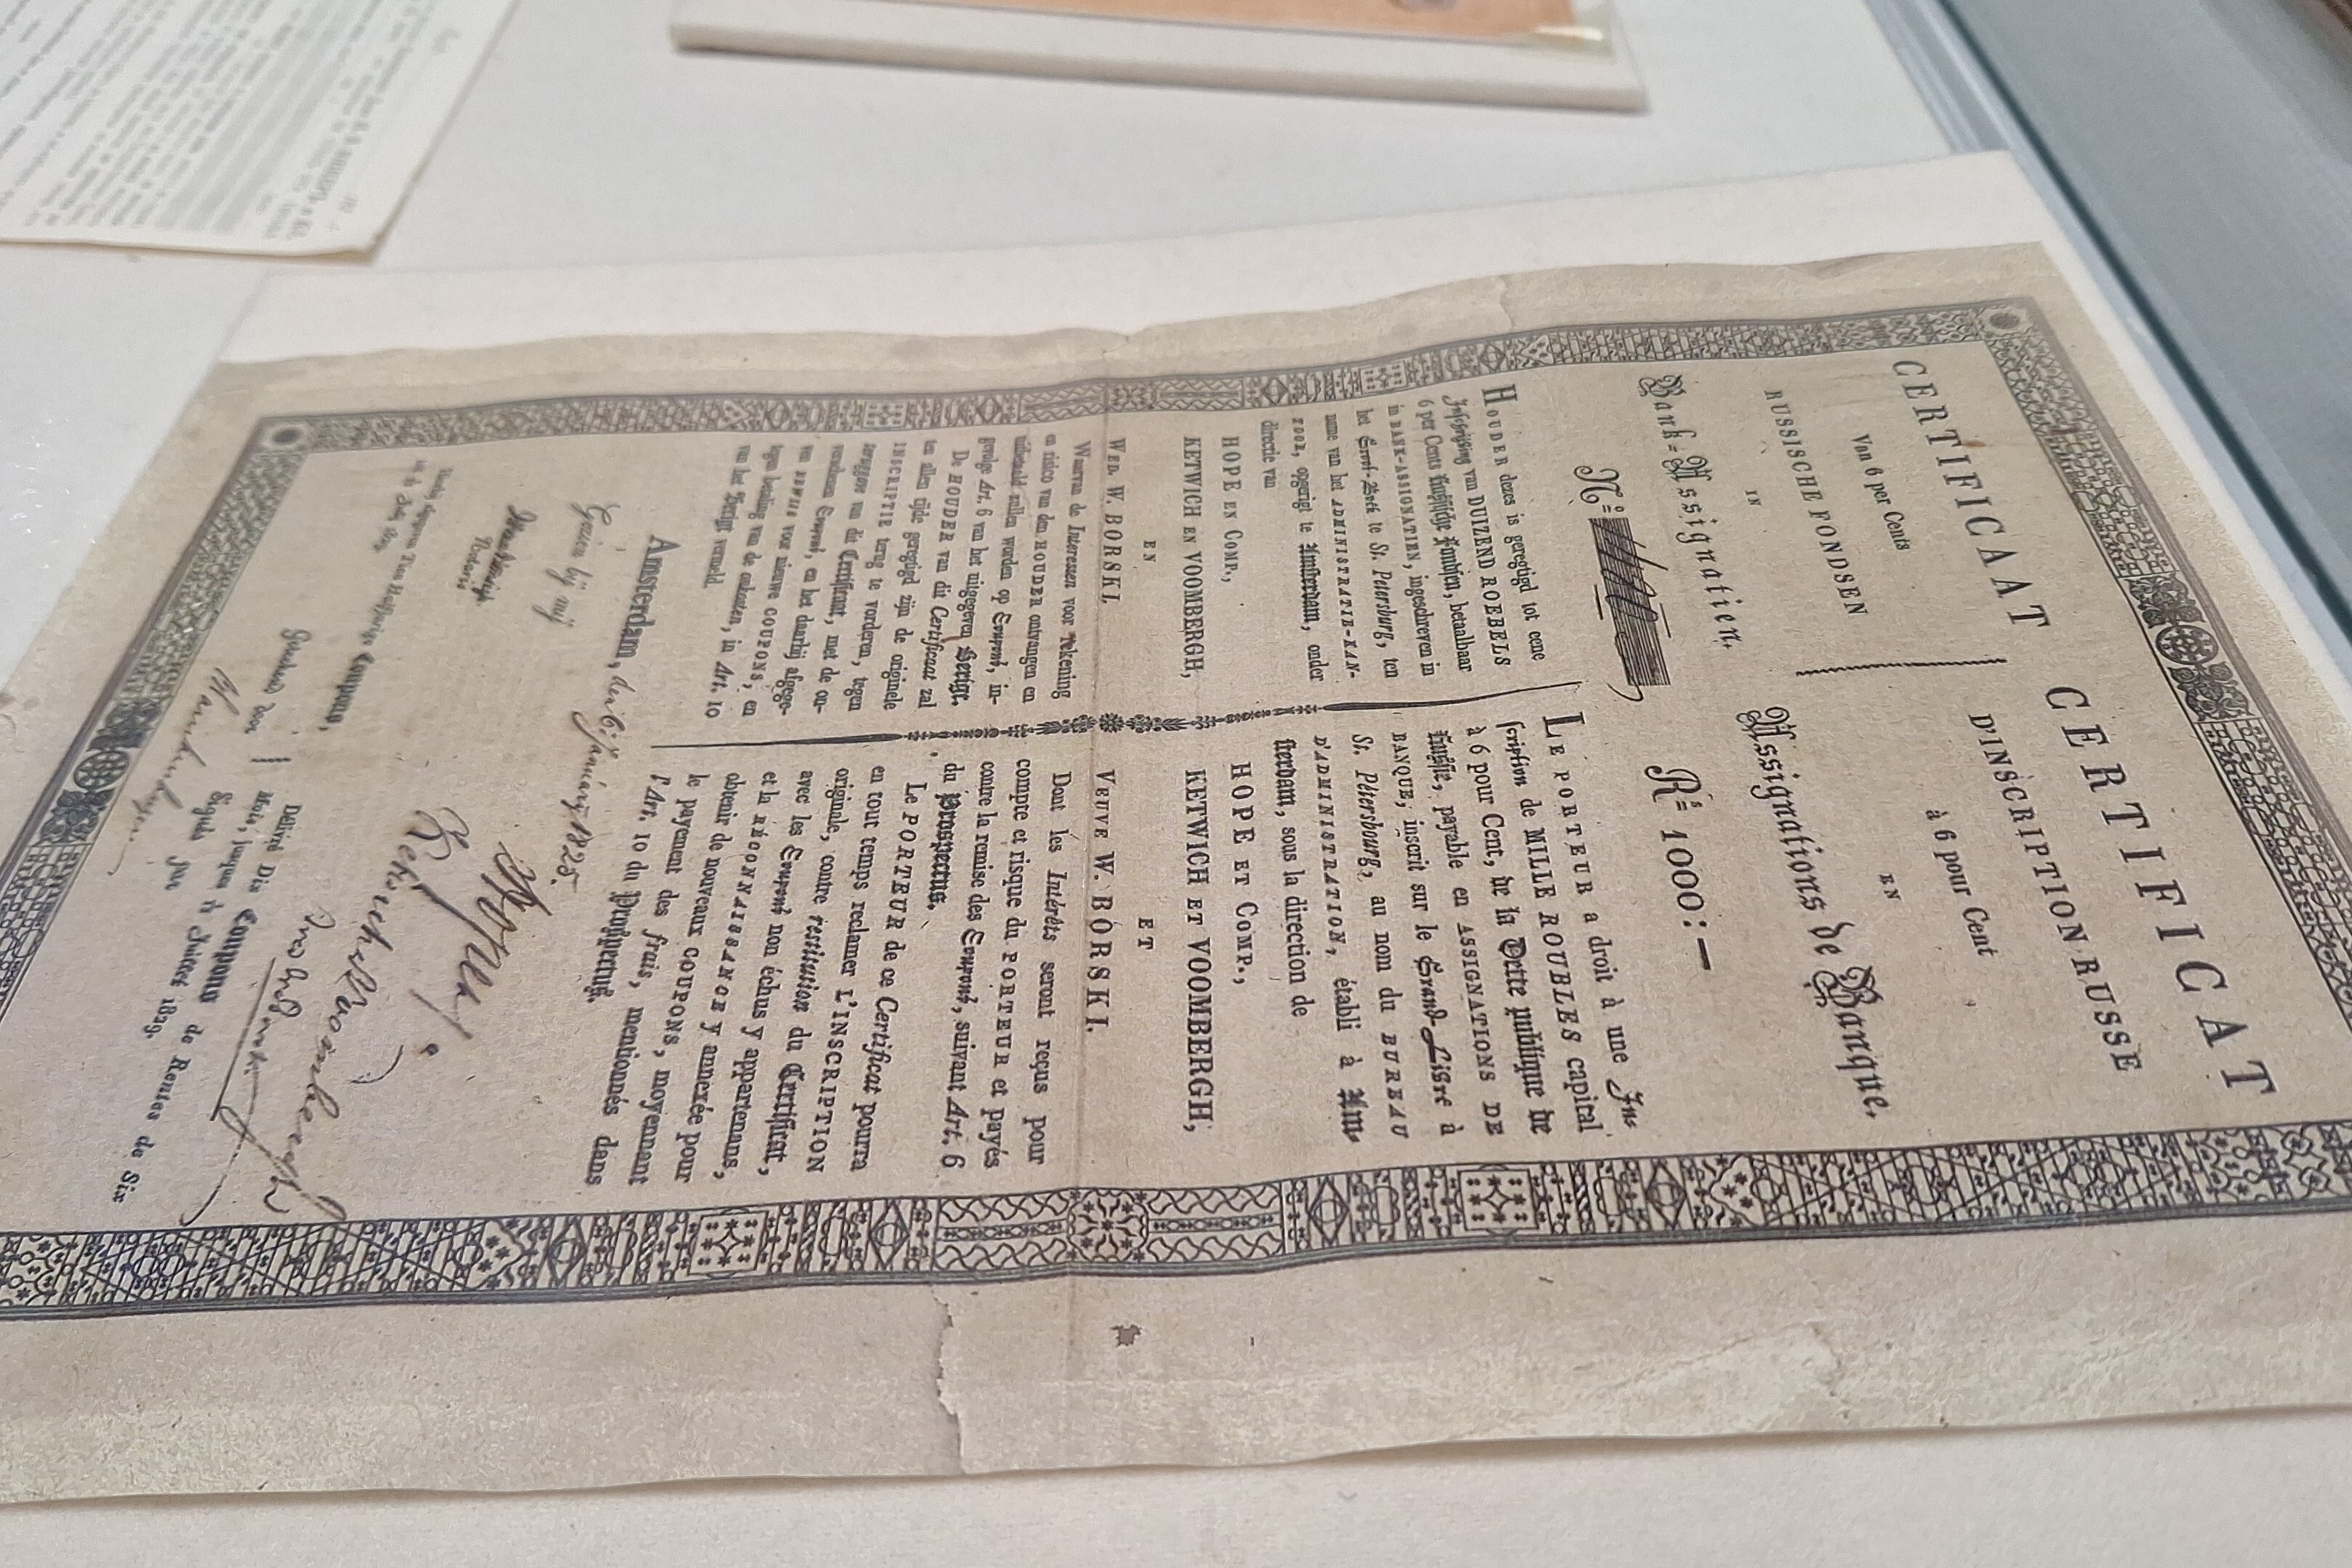 CERTIFICAAT
Van 6 per Cents
RUSSISCHE FONDSEN
IN
Bank-Assignatien.
CERTIFICAT
D'INSCRIPTION RUSSE
à 6 pour Cent
EN
Assignations de Banque.
N.º
R.s 1000:—
HOUDER dezes is geregtigd tot eene
Inschrijving van DUIZEND ROEBELS
6 per Cents Russische Fondsen, betaalbaar
in BANK-ASSIGNATIEN, ingeschreven in
het Groot-Boek te St. Petersburg, ten
name van het ADMINISTRATIE-KAN-
TOOR, opgerigt te Amsterdam, onder
directie van
HOPE EN COMP.,
KETWICH EN VOOMBERGH,
EN
WED. W. BORSKI,
Waarvan de Interessen voor Rekening
en risico van den HOUDER ontvangen en
uitbetaald zullen worden op Coupons, in-
gevolge Art. 6 van het uitgegeven Berigt.
De HOUDER van dit Certificaat zal
ten allen tijde geregtigd zijn de originele
INSCRIPTIE terug te vorderen, tegen
teruggave van dit Certificaat, met de on-
verschenen Coupons, en het daarbij afgege-
ven BEWIJS voor nieuwe COUPONS, en
tegen betaling van de onkosten, in Art. 10
van het Berigt vermeld.
LE PORTEUR a droit à une In-
scription de MILLE ROUBLES capital
à 6 pour Cent, de la Dette publique de
Russie, payable en ASSIGNATIONS DE
BANQUE, inscrit sur le Grand-Livre à
St. Pétersbourg, au nom du BUREAU
D'ADMINISTRATION, établi à Am-
sterdam, sous la direction de
HOPE ET COMP.,
KETWICH ET VOOMBERGH,
ET
VEUVE W. BORSKI.
Dont les Intérêts seront reçus pour
compte et risque du PORTEUR et payés
contre la remise des Coupons, suivant Art. 6
du Prospectus.
Le PORTEUR de ce Certificat pourra
en tout temps reclamer L'INSCRIPTION
originale, contre restitution du Certificat,
avec les Coupons non échus y appartenans,
et la RÉCONNAISSANCE y annexée pour
obtenir de nouveaux COUPONS, moyennant
le payement des frais, mentionnés dans
l'Art. 10 du Prospectus.
Amsterdam, de 6 January 1825.
Gezien bij mij
Notaris
Hope
Ketwich & Voombergh
Coupons,
Geteekend door
Délivré Dix Coupons de Rentes de Six
Mois, jusques 1829,
Signés par